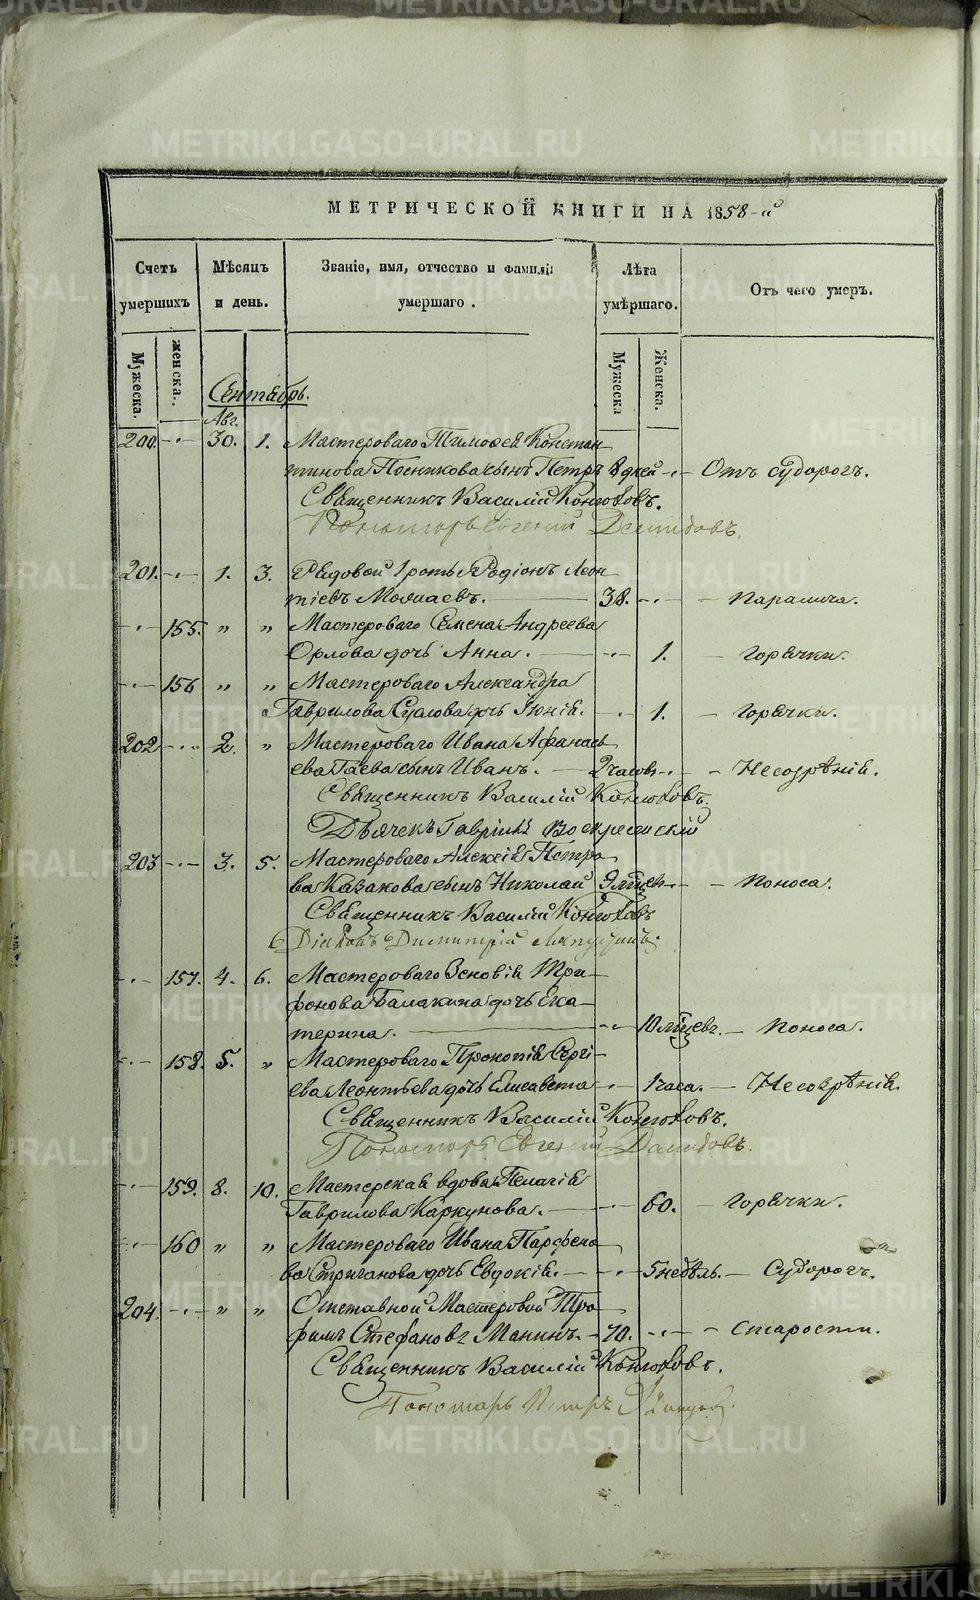 МЕТРИЧЕСКОЙ КНИГИ НА 1858-й
Счетъ умершихъ Мѣсяцъ и день. Званіе, имя, отчество и фамилія умершаго. Лѣта умѣршаго. Отъ чего умеръ.
Мужеска. женска. Мужеска Женска.
Сентябрь.
Авг.
200. 30. 1. Мастероваго Тимофея Констан
тинова Посникова сынъ Петръ 8 дней Отъ судорогъ.
Священникъ Василій Конюховъ.
Пономарь Евгеній Демидовъ.
201. 1. 3. Рядовой 1 роты Родіонъ Леон
тіевъ 38. Паралича.
155. " " Мастероваго Семена Андреева
Орлова дочь Анна. 1. Горячки.
156 " " Мастероваго Александра
Гаврилова дочь 1. Горячки.
202 2. " Мастероваго Ивана Афанась
ева Гаева сынъ Иванъ. 2 часовъ Несозрѣнія.
Священникъ Василій Конюховъ.
Дьячекъ Гавріилъ Воскресенскій
203 3. 5. Мастероваго Алексія Петро
ва Казакова сынъ Николай 9 мѣсяц. Поноса.
Священникъ Василій Конюховъ
Діаконъ Димитрій Ляпустинъ.
157. 4. 6. Мастероваго Зеновія Три
фонова Балакина дочь Ека
терина. 10 мѣсяц. Поноса.
158. 5. " Мастероваго Прокопія Сергі
ева Леонтьева дочь Елисавета 1 часа. Несозрѣнія.
Священникъ Василій Конюховъ.
Пономарь Евгеній Демидовъ.
159. 8. 10. Мастерская вдова Пелагія
Гаврилова Каркунова. 60. Горячки.
160 " " Мастероваго Ивана Парфено
ва Стриганова дочь Евдокія. 5 недѣль. Судорогъ.
204. " " Отставной Мастеровой Тро
фимъ Стефановъ Манинъ. 70. Старости.
Священникъ Василій Конюховъ.
Пономарь Петръ
METRIKI.GASO-URAL.RU